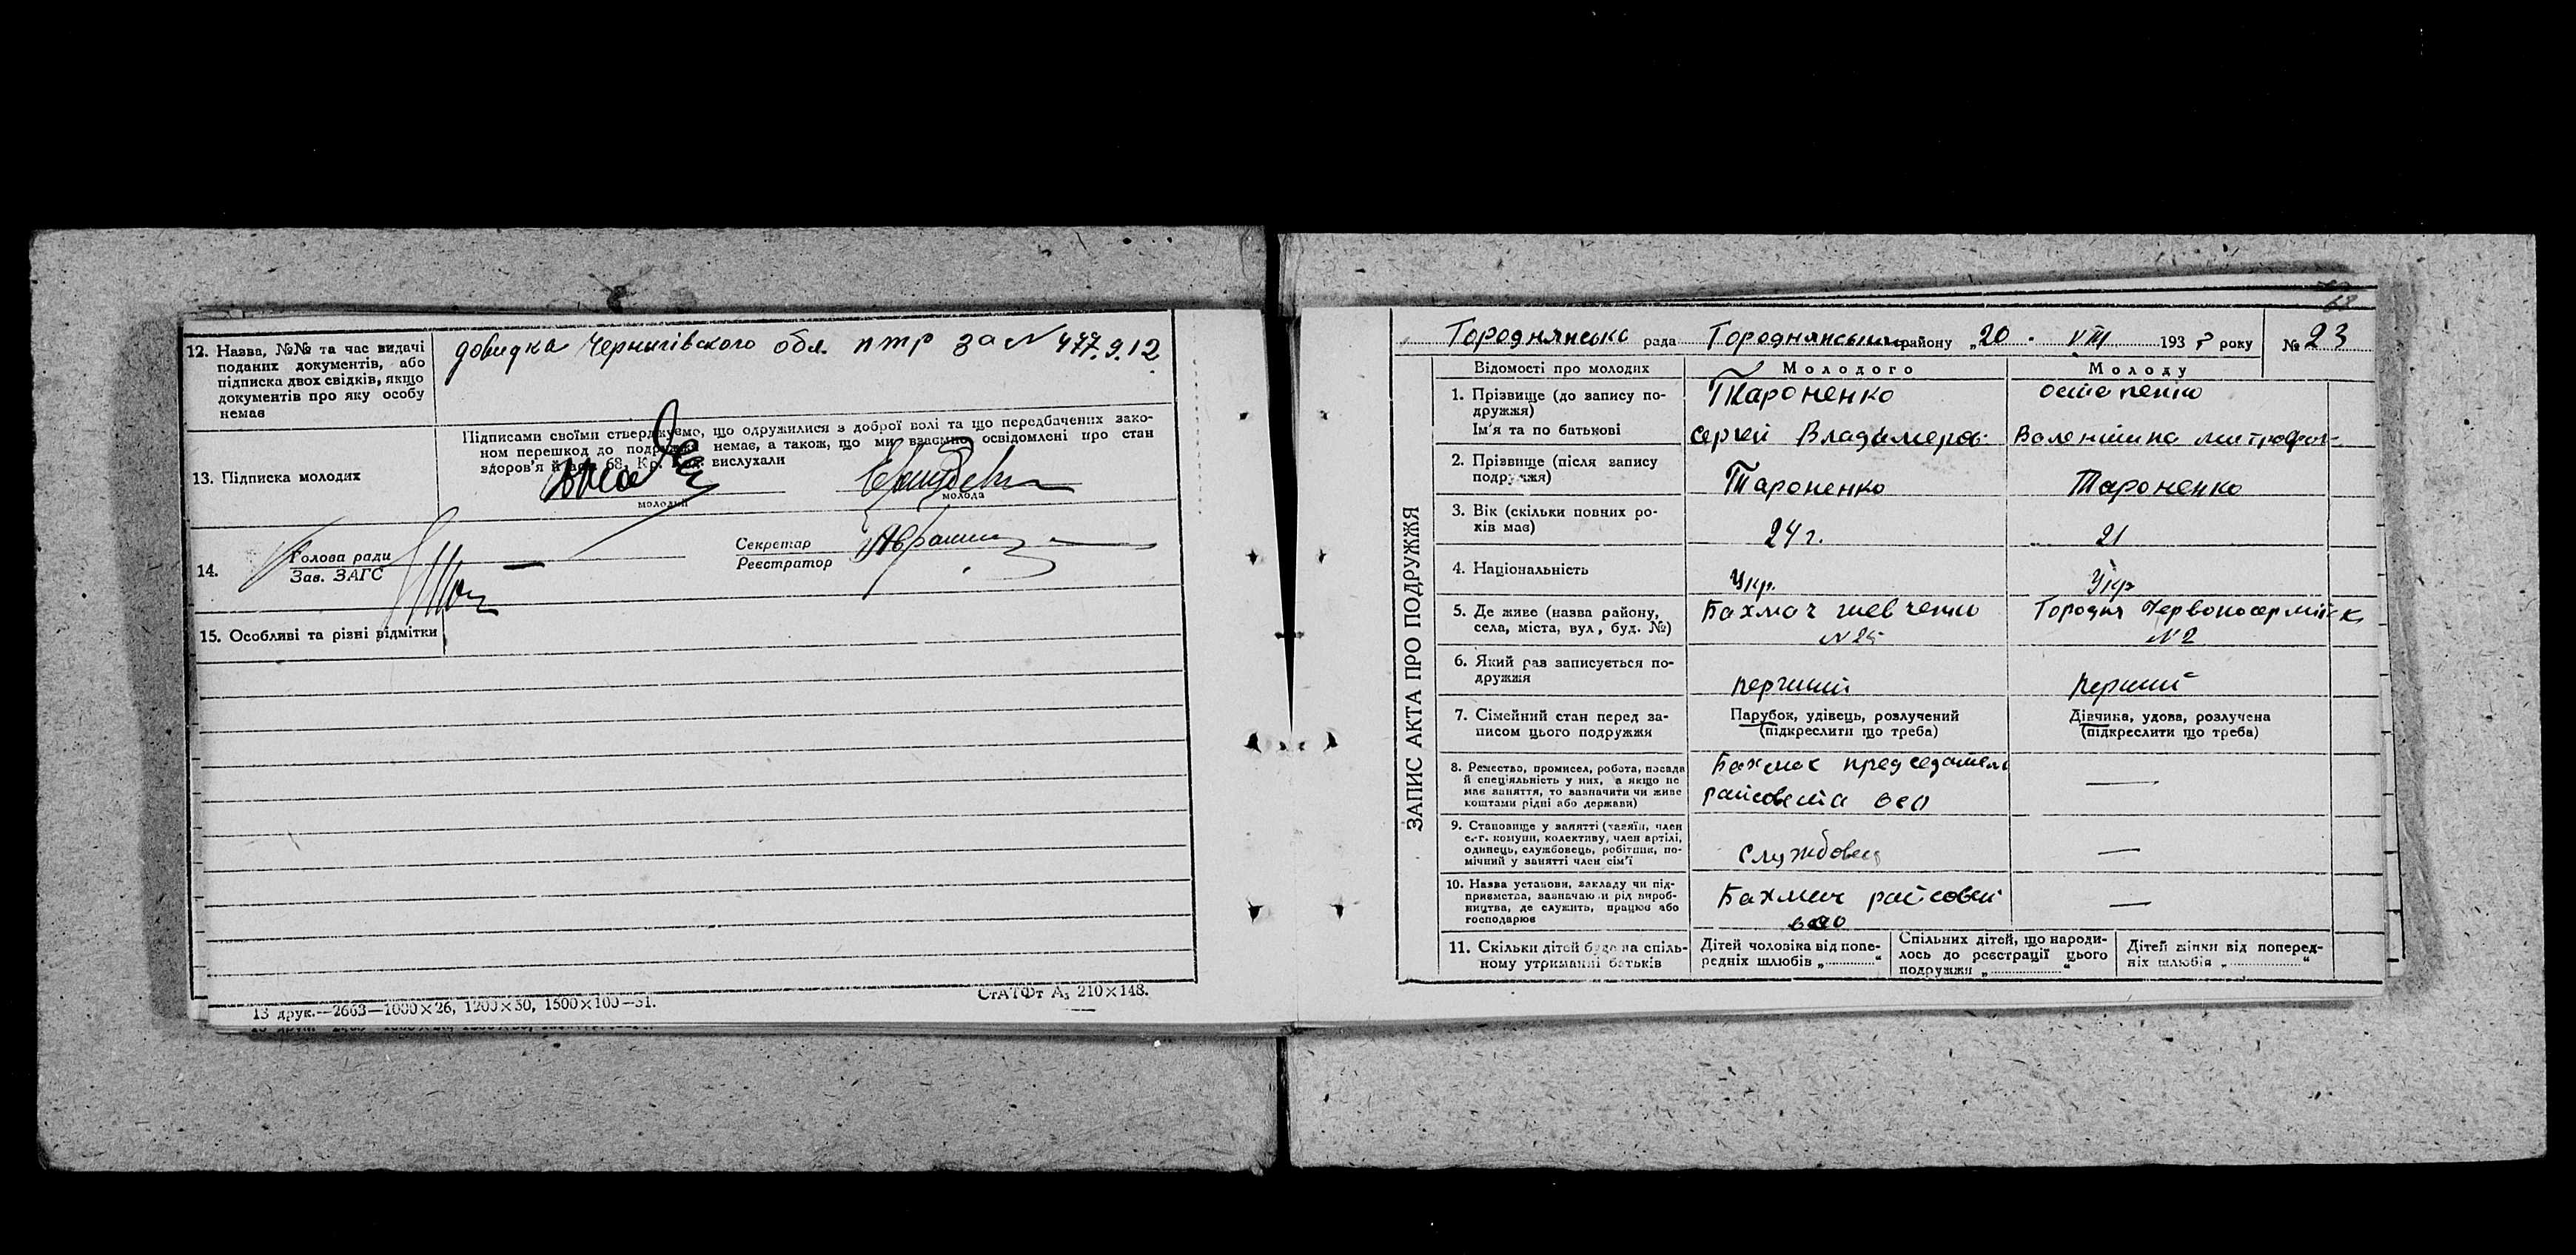 12. Назва, №№ та час видачі
поданих документів, або
підписка двох свідків, якщо
документів про яку особу
немає
довидка Чернигівского обл. птр за N 477. 9.12
Підписами своїми стверджуємо, що одружилися з доброї волі та що передбачених зако-
ном перешкод до подружжя немає, а також, що ми взаємно освідомлені про стан
здоров'я й арт. 68. Кр. Код. вислухали
13. Підписка молодих
молодий
молода
14.
Голова ради
Зав. ЗАГС
Секретар
Реєстратор
15. Особливі та різні відмітки
13 друк.—2663—1000×26, 1200×30, 1500×100—31.
СтАТФт А₅ 210×148.
68
Городнянсько рада Городнянський району „20 . VIII 193 року № 23
ЗАПИС АКТА ПРО ПОДРУЖЖЯ
Відомості про молодих
Молодого
Молоду
1. Прізвище (до запису по-
дружжя)
Ім'я та по батькові
Тароненко
Сергей Владимеров
Остапенко
Валентина митрофан-
2. Прізвище (після запису
подружжя)
Тароненко
Тароненко
3. Вік (скільки повних ро-
ків має)
24 г.
21
4. Національність
Укр.
Укр
5. Де живе (назва району,
села, міста, вул, буд. №)
Бахмач шевченко
N 25
Городня Червоноармійск
N 2
6. Який раз записується по-
дружжя
перчший
перший
7. Сімейний стан перед за-
писом цього подружжя
Парубок, удівець, розлучений
(підкреслити що треба)
Дівчина, удова, розлучена
(підкреслити що треба)
8. Ремество, промисел, робота, посада
й спеціяльність у них, а якщо не
має заняття, то зазначити чи живе
коштами рідні або держави)
Бахмач председатель
райсовета осо
—
9. Становище у занятті (хазяїн, член
с.-г. комуни, колективу, член артілі,
одинець, службовець, робітник, по-
мічний у занятті член сім'ї
Службовец
—
10. Назва установи, закладу чи під-
приємства, зазначаючи рід вироб-
ництва, де служить, працює або
господарює
Бахмач райсовет
осо
—
11. Скільки дітей буде на спіль-
ному утриманні батьків
Дітей чоловіка від попе-
редніх шлюбів „ “
Спільних дітей, що народи-
лось до реєстрації цього
подружжя „ “
Дітей жінки від поперед-
ніх шлюбів „ “